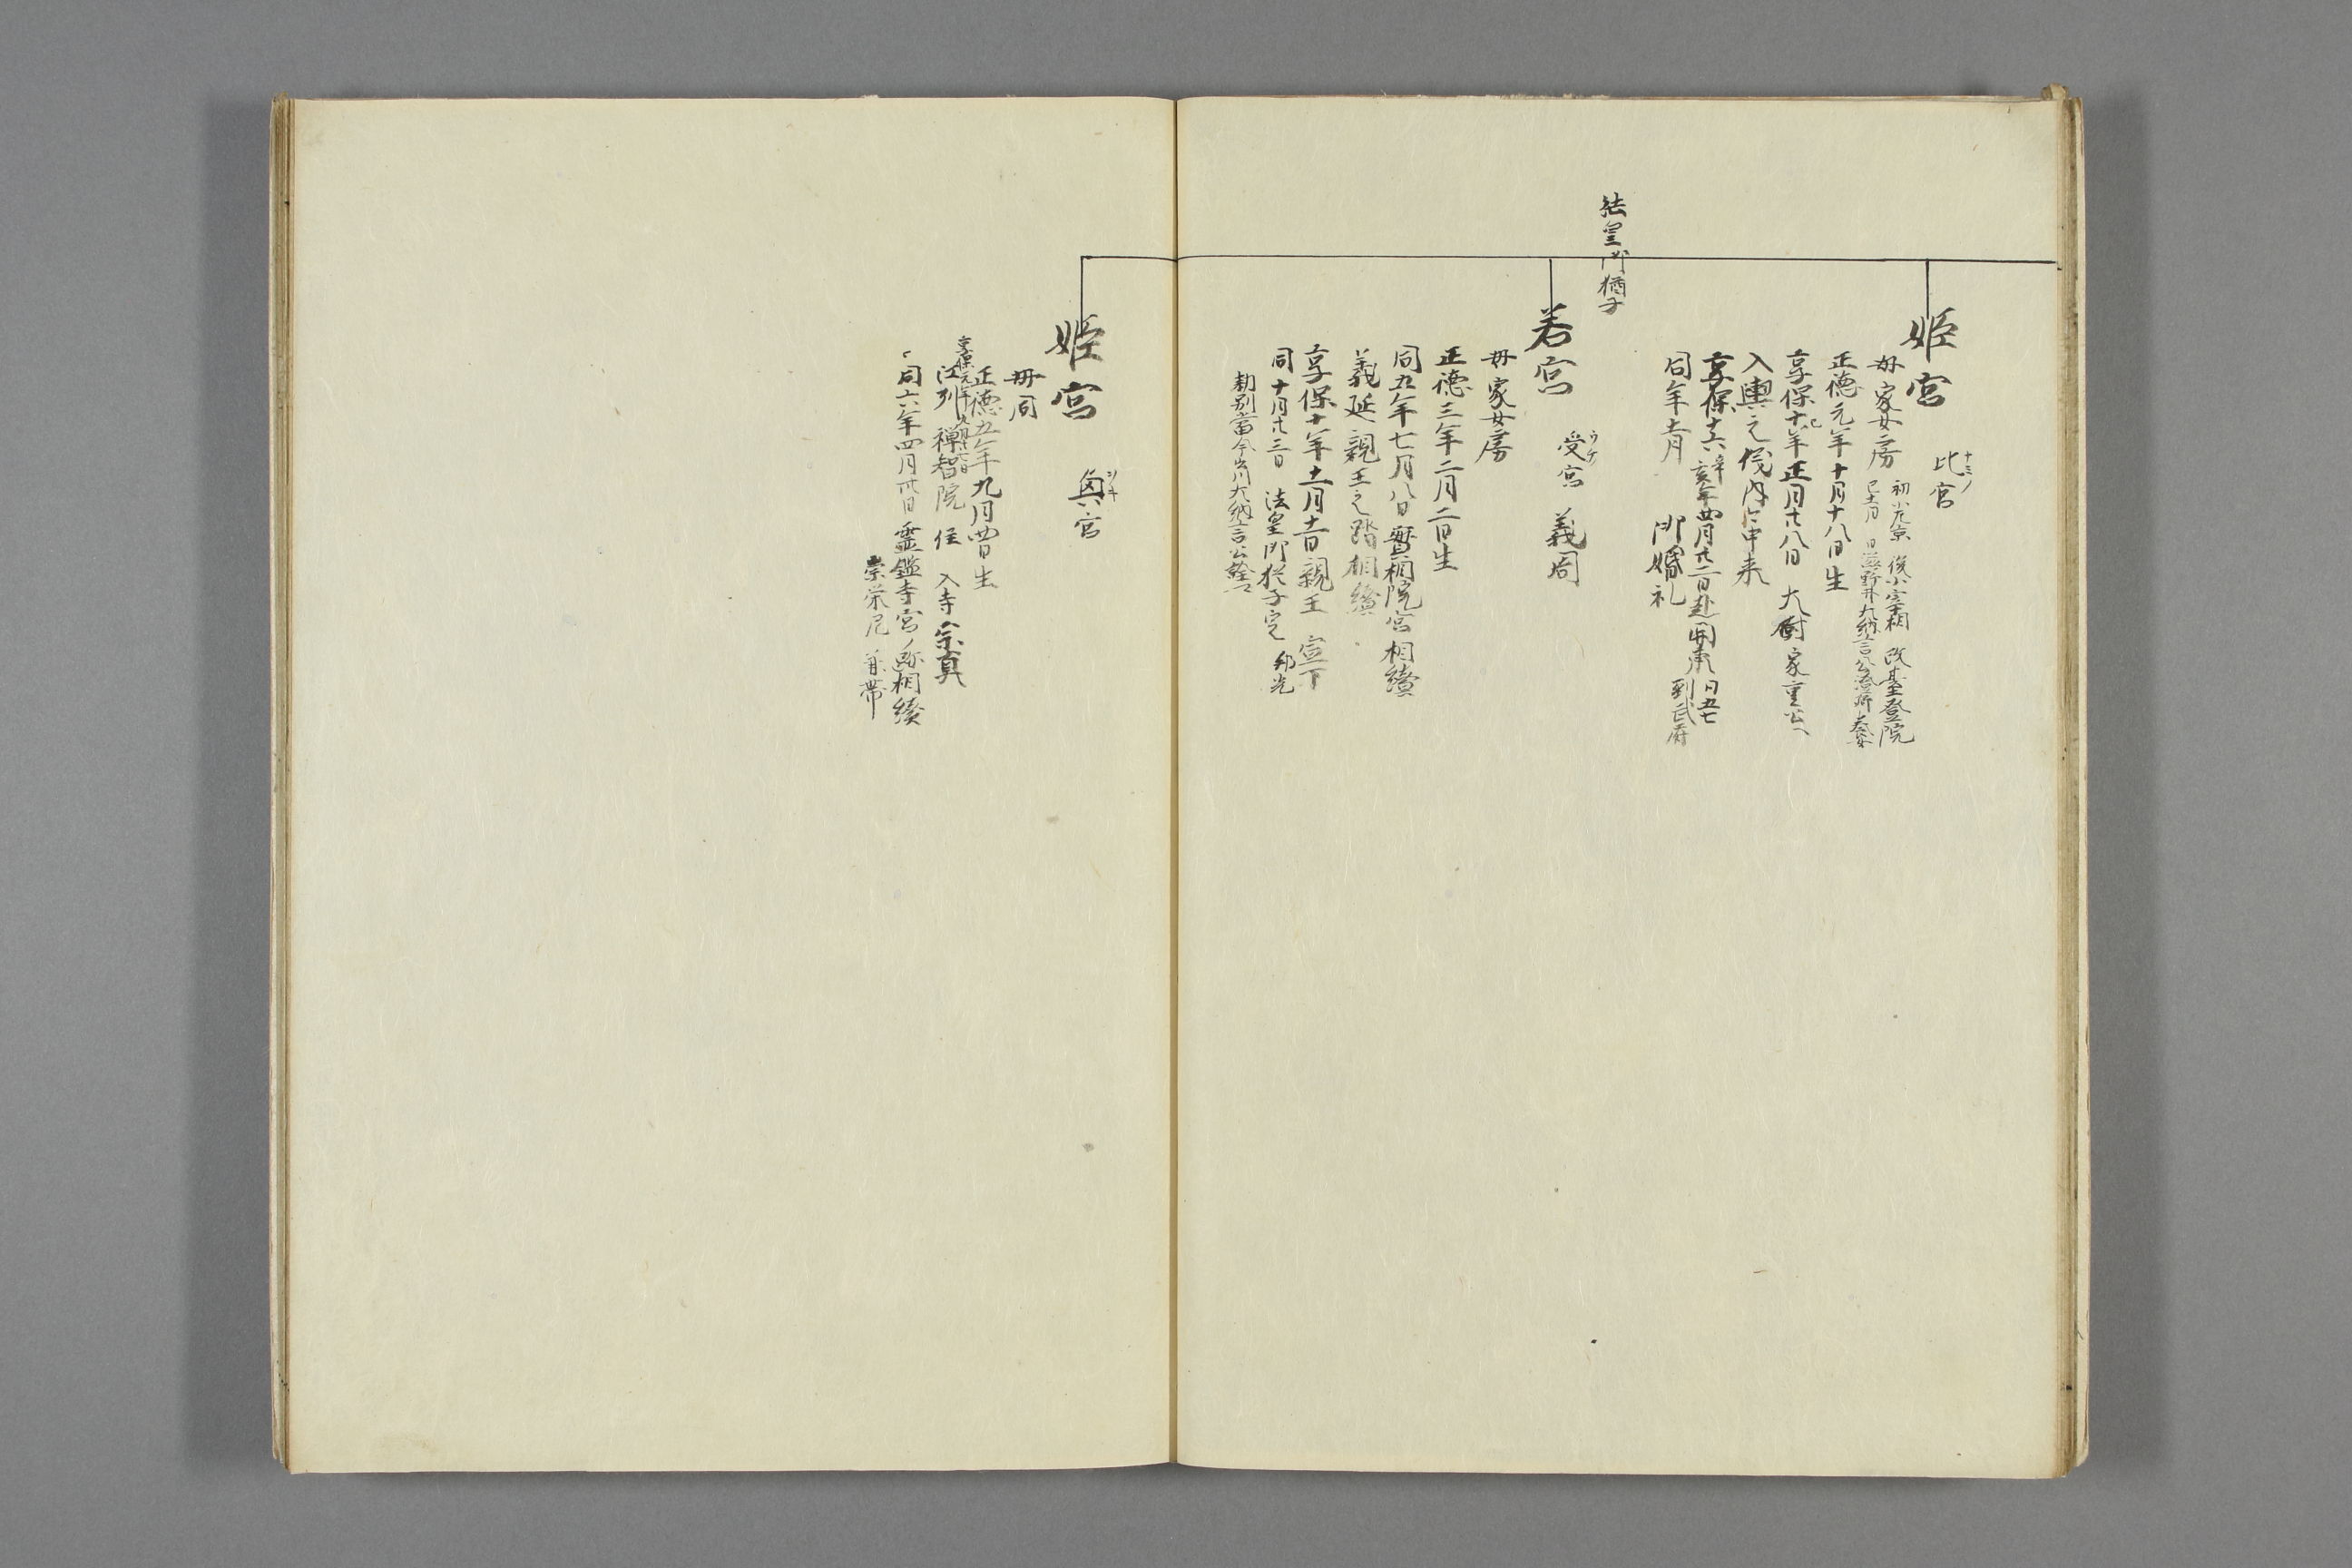 姫宮
比宮
母家女房
初小左京 後小宰相 改甚登院
正徳元年十月十八日生
享保十年正月廿八日 大樹家重公へ
入輿之儀内々申来
享保十六辛亥年四月廿二日赴関東
同年十二月 御婚礼
法皇御猶子
若宮
ウケ
受宮 義周
母家女房
正徳三年二月二日生
同五年七月八日暫相院宮相續
義延親王之跡相續
享保十年十二月十一日親王 宣下
同十月廿三日 法皇御猶子定 邦光
勅別當今出川大納言公詮公
姫宮
寅宮
母同
正徳五年九月四日生
江州 禅智院 住 入寺 宗真
同六年四月廿日 霊鑑寺宮ノ跡相續
崇栄尼 兼帯